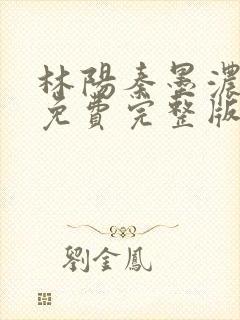 林陽秦墨濃
免費完整版
劉金鳳